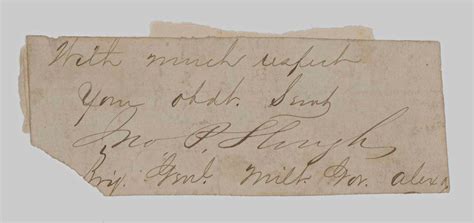 With much respect
Your obdt. Servt
Jno P. Slough
Brig. Genl. Milt. Gov. Alexa